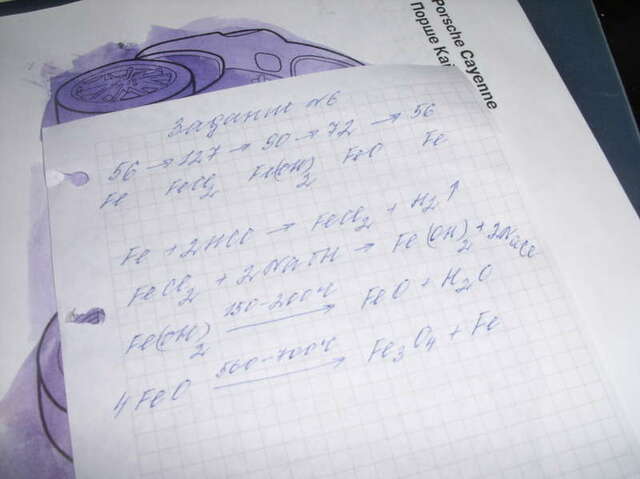 Porsche Cayenne
Порше Кай
Задание №6
56 → 127 → 90 → 72 → 56
Fe FeCl2 Fe(OH)2 FeO Fe
Fe + 2HCl → FeCl2 + H2↑
FeCl2 + 2NaOH → Fe(OH)2 + 2NaCl
Fe(OH)2 150-200°C → FeO + H2O
4FeO 560-700°C → Fe3O4 + Fe